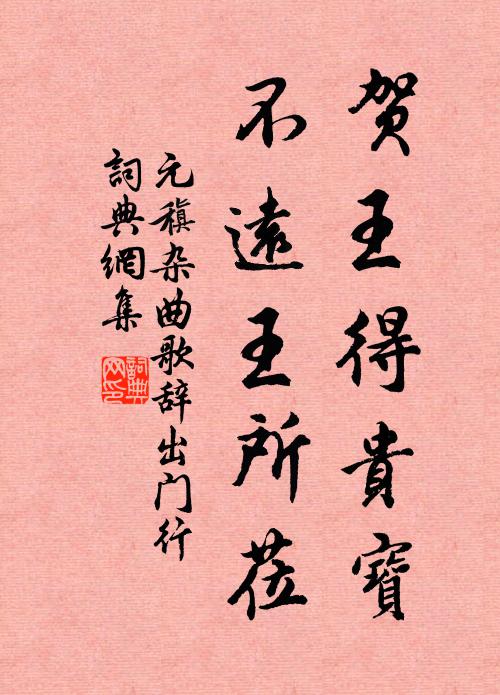 贺王得貴寶
不遠王所莅
元稹杂曲歌辞出门行
詞典網集
詞典网印